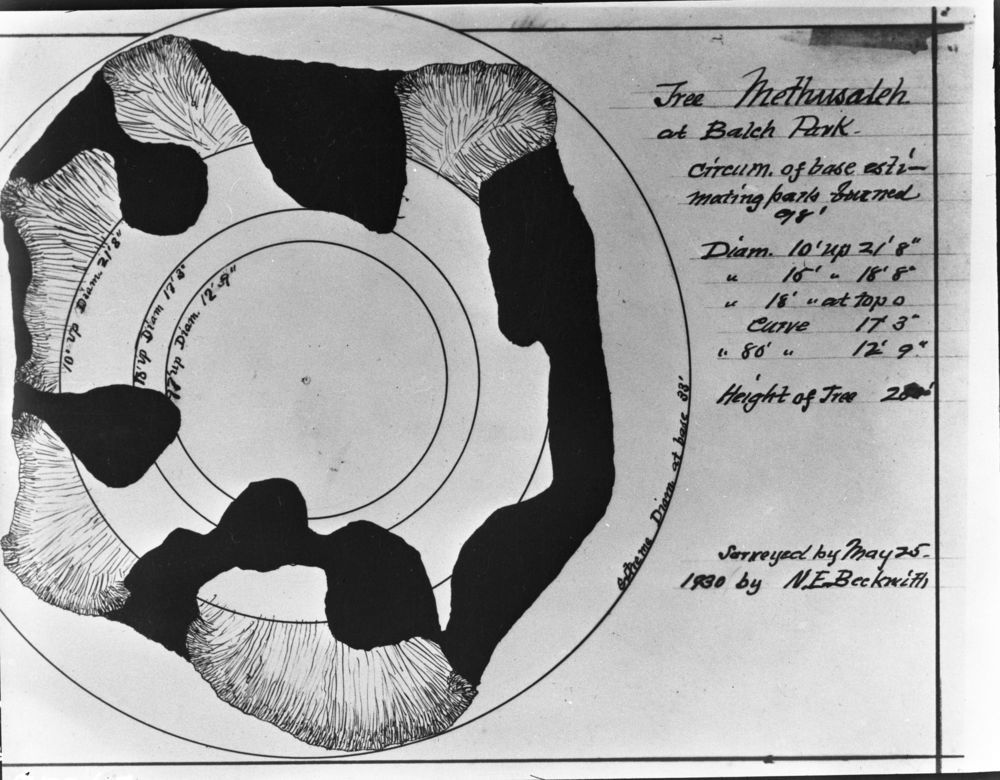 Tree Methusaleh
at Balch Park.
Circum. of base esti-
mating parts burned
98'
Diam. 10' up 21' 8"
" 15' " 18' 8"
" 18' " at top o
Curve 17' 3"
" 86' " 12' 9"
Height of Tree
Surveyed by May 25-
1930 by N.E. Beckwith
10' up Diam. 21' 8"
18' up Diam 17' 3"
up Diam. 12' 9"
extreme Diam at base 33'